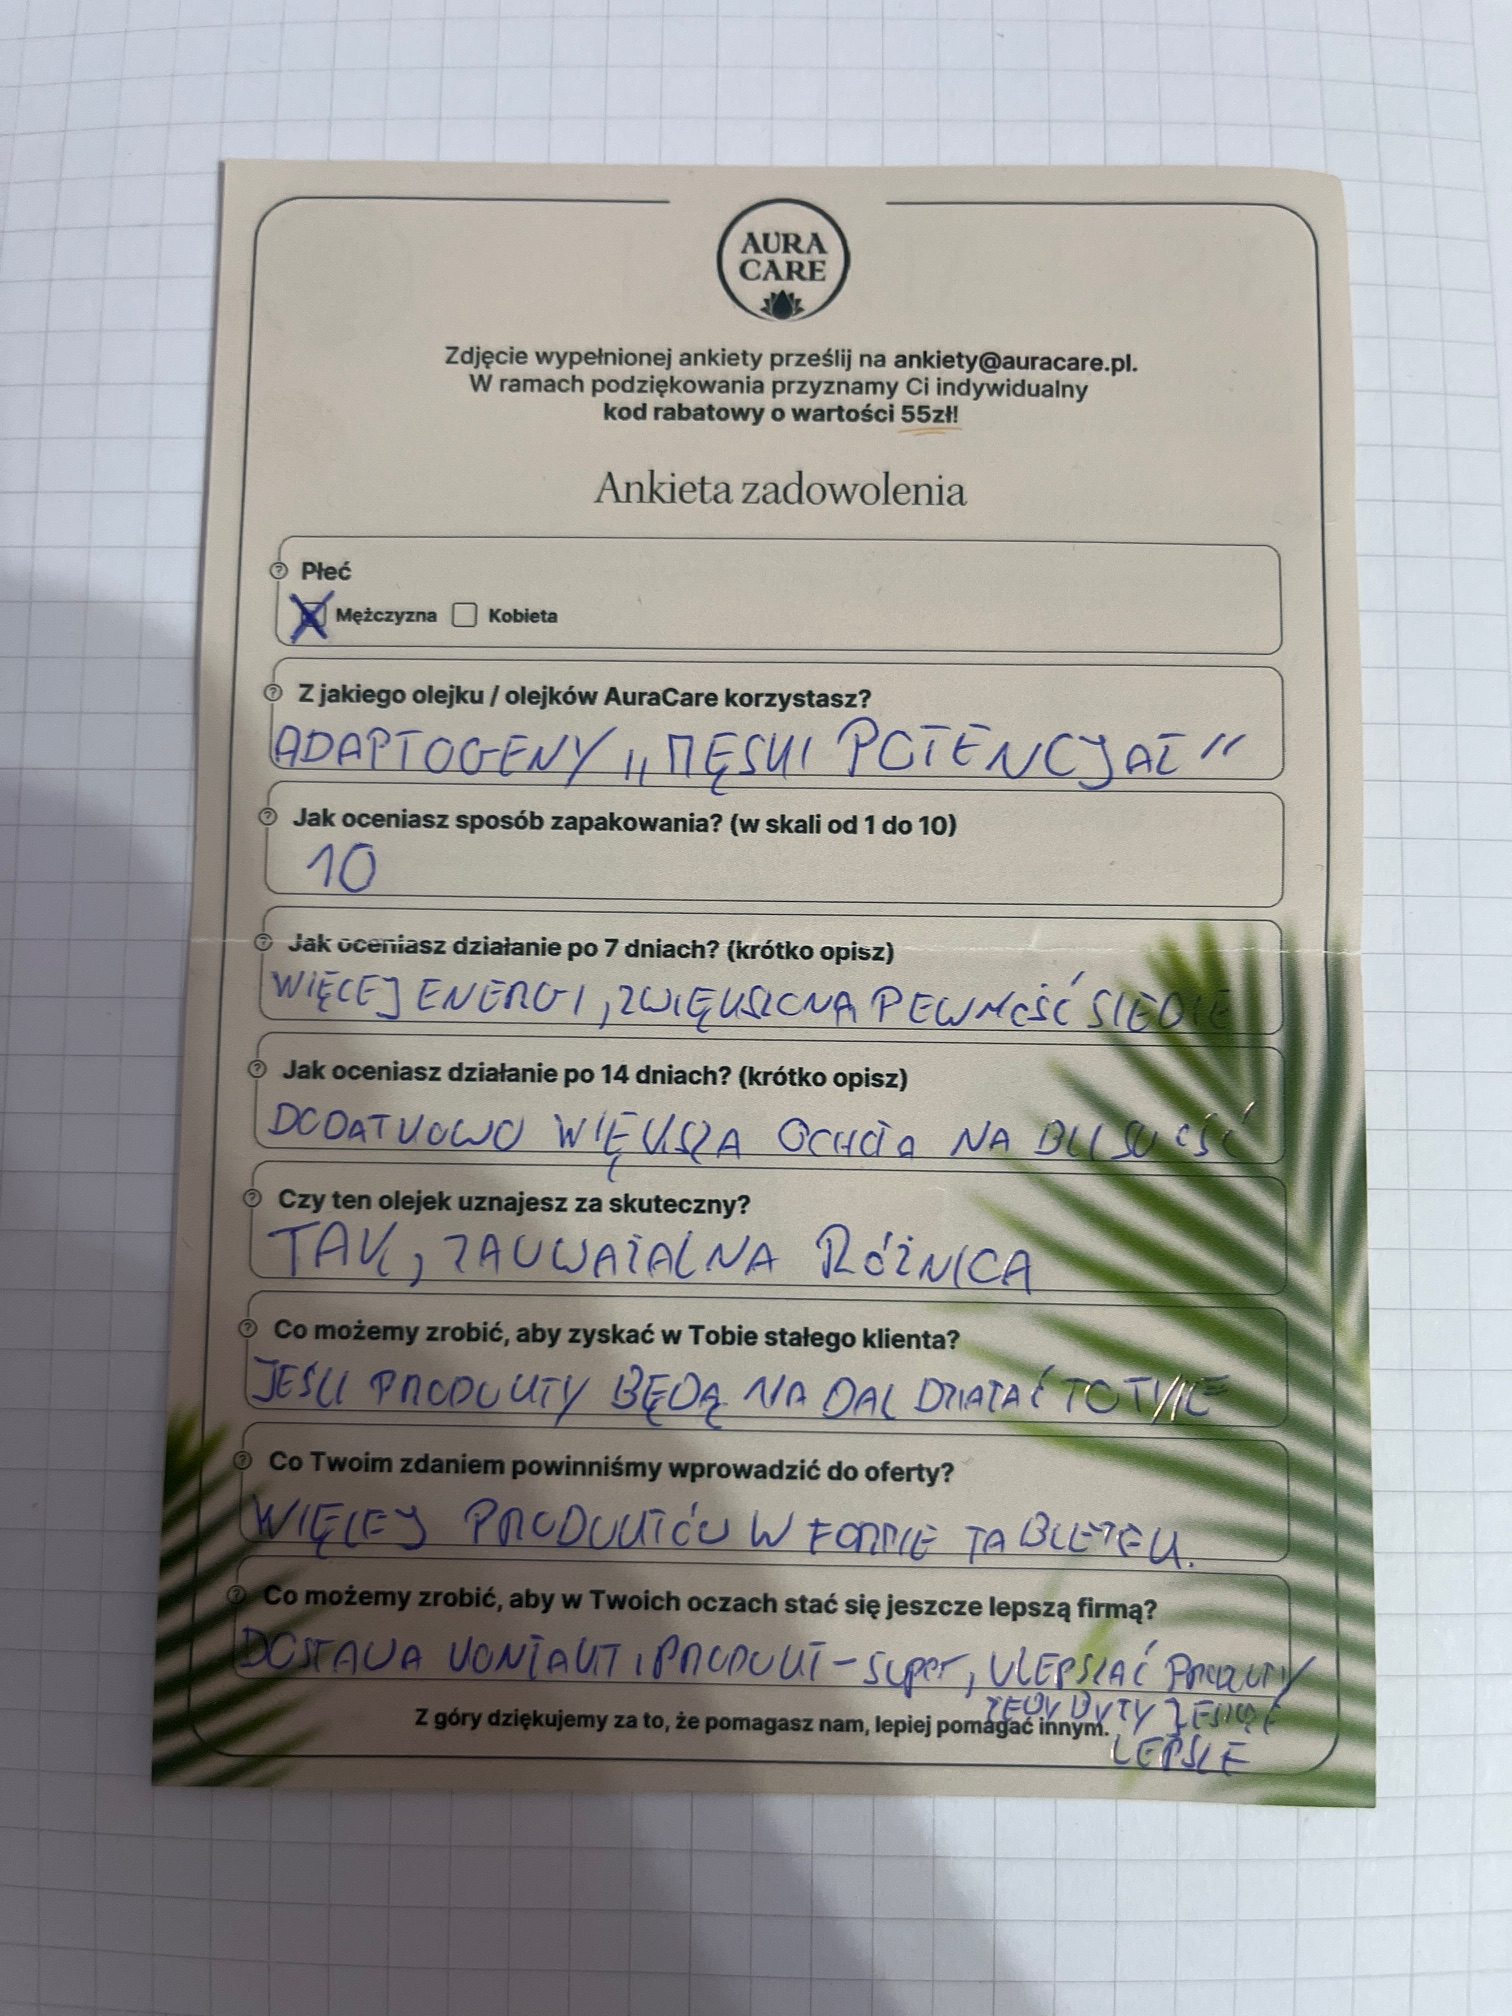 AURA
CARE
Zdjęcie wypełnionej ankiety prześlij na ankiety@auracare.pl.
W ramach podziękowania przyznamy Ci indywidualny
kod rabatowy o wartości 55zł!
Ankieta zadowolenia
Płeć
Mężczyzna Kobieta
Z jakiego olejku / olejków AuraCare korzystasz?
ADAPTOGENY „MĘSKI POTENCJAŁ"
Jak oceniasz sposób zapakowania? (w skali od 1 do 10)
10
Jak oceniasz działanie po 7 dniach? (krótko opisz)
WIĘCEJ ENERGI, ZWIĘKSZONA PEWNOŚĆ SIEBIE
Jak oceniasz działanie po 14 dniach? (krótko opisz)
DODATKOWO WIĘKSZA OCHOTA NA BLISKOŚĆ
Czy ten olejek uznajesz za skuteczny?
TAK, ZAUWAŻALNA RÓŻNICA
Co możemy zrobić, aby zyskać w Tobie stałego klienta?
JEŚLI PRODUKTY BĘDĄ NADAL DZIAŁAĆ TO TYLE
Co Twoim zdaniem powinniśmy wprowadzić do oferty?
WIĘCEJ PRODUKTÓW W FORMIE TABLETEK.
Co możemy zrobić, aby w Twoich oczach stać się jeszcze lepszą firmą?
DOSTAWA KONTAKT i PRODUKT - super, ULEPSZAĆ PRODUKTY
ŻEBY BYŁY JESZCZE
Z góry dziękujemy za to, że pomagasz nam, lepiej pomagać innym.
LEPSZE